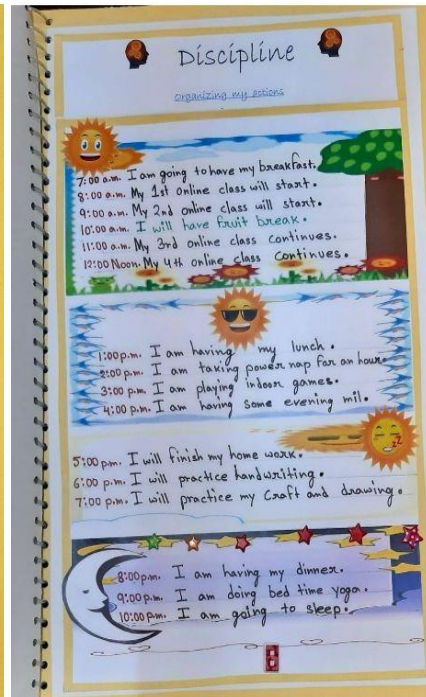 Discipline
organizing my actions
7:00 a.m. I am going to have my breakfast.
8:00 a.m. My 1st online class will start.
9:00 a.m. My 2nd online class will start.
10:00 a.m. I will have fruit break.
11:00 a.m. My 3rd online class continues.
12:00 Noon. My 4th online class continues.
1:00 p.m. I am having my lunch.
2:00 p.m. I am taking power nap for an hour.
3:00 p.m. I am playing indoor games.
4:00 p.m. I am having some evening mil.
5:00 p.m. I will finish my home work.
6:00 p.m. I will practice handwriting.
7:00 p.m. I will practice my craft and drawing.
8:00 p.m. I am having my dinner.
9:00 p.m. I am doing bed time yoga.
10:00 p.m. I am going to sleep.